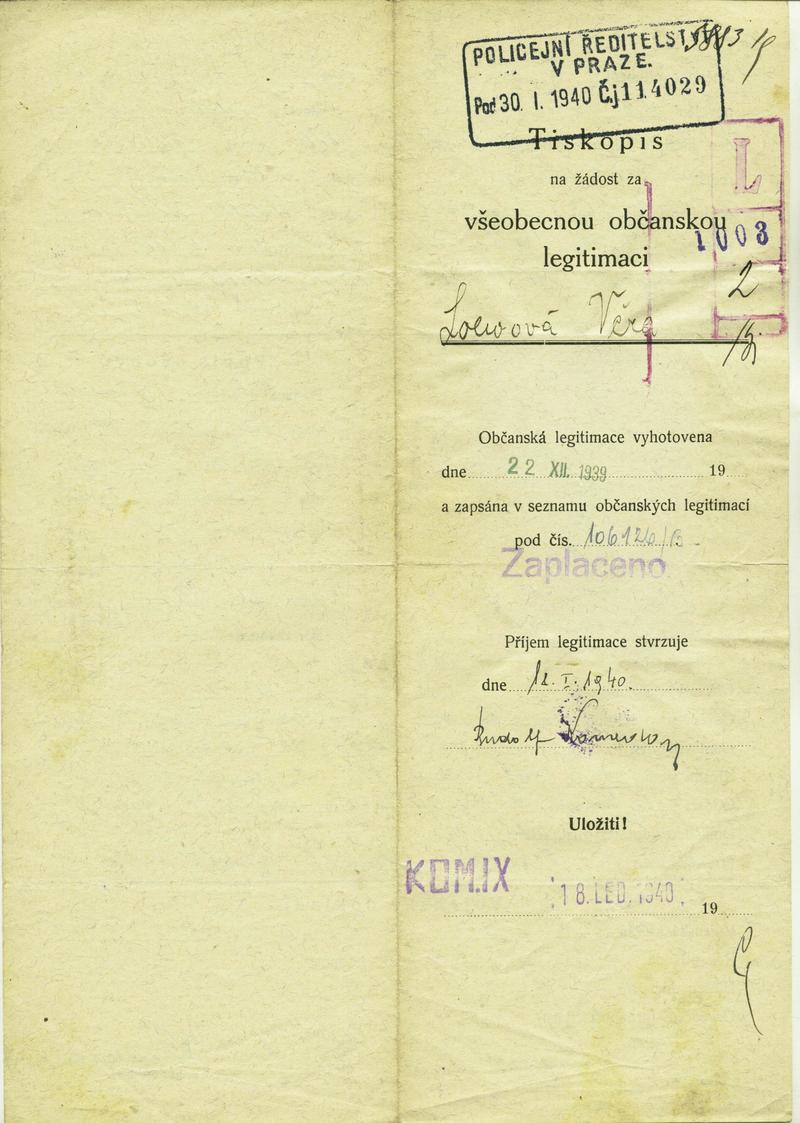 POLICEJNÍ ŘEDITELSTVÍ
V PRAZE.
Poč 30. I. 1940 Č.j 114029
Tiskopis
L
na žádost za
všeobecnou občanskou
1003
legitimaci
2
Loewová Věra
Občanská legitimace vyhotovena
dne 22 XII. 1939 19
a zapsána v seznamu občanských legitimací
pod čís. 106126/B
Zaplaceno
Příjem legitimace stvrzuje
dne 12. I. 1940.
Rudolf
Uložiti!
KOM.IX
18. LED. 1940. 19